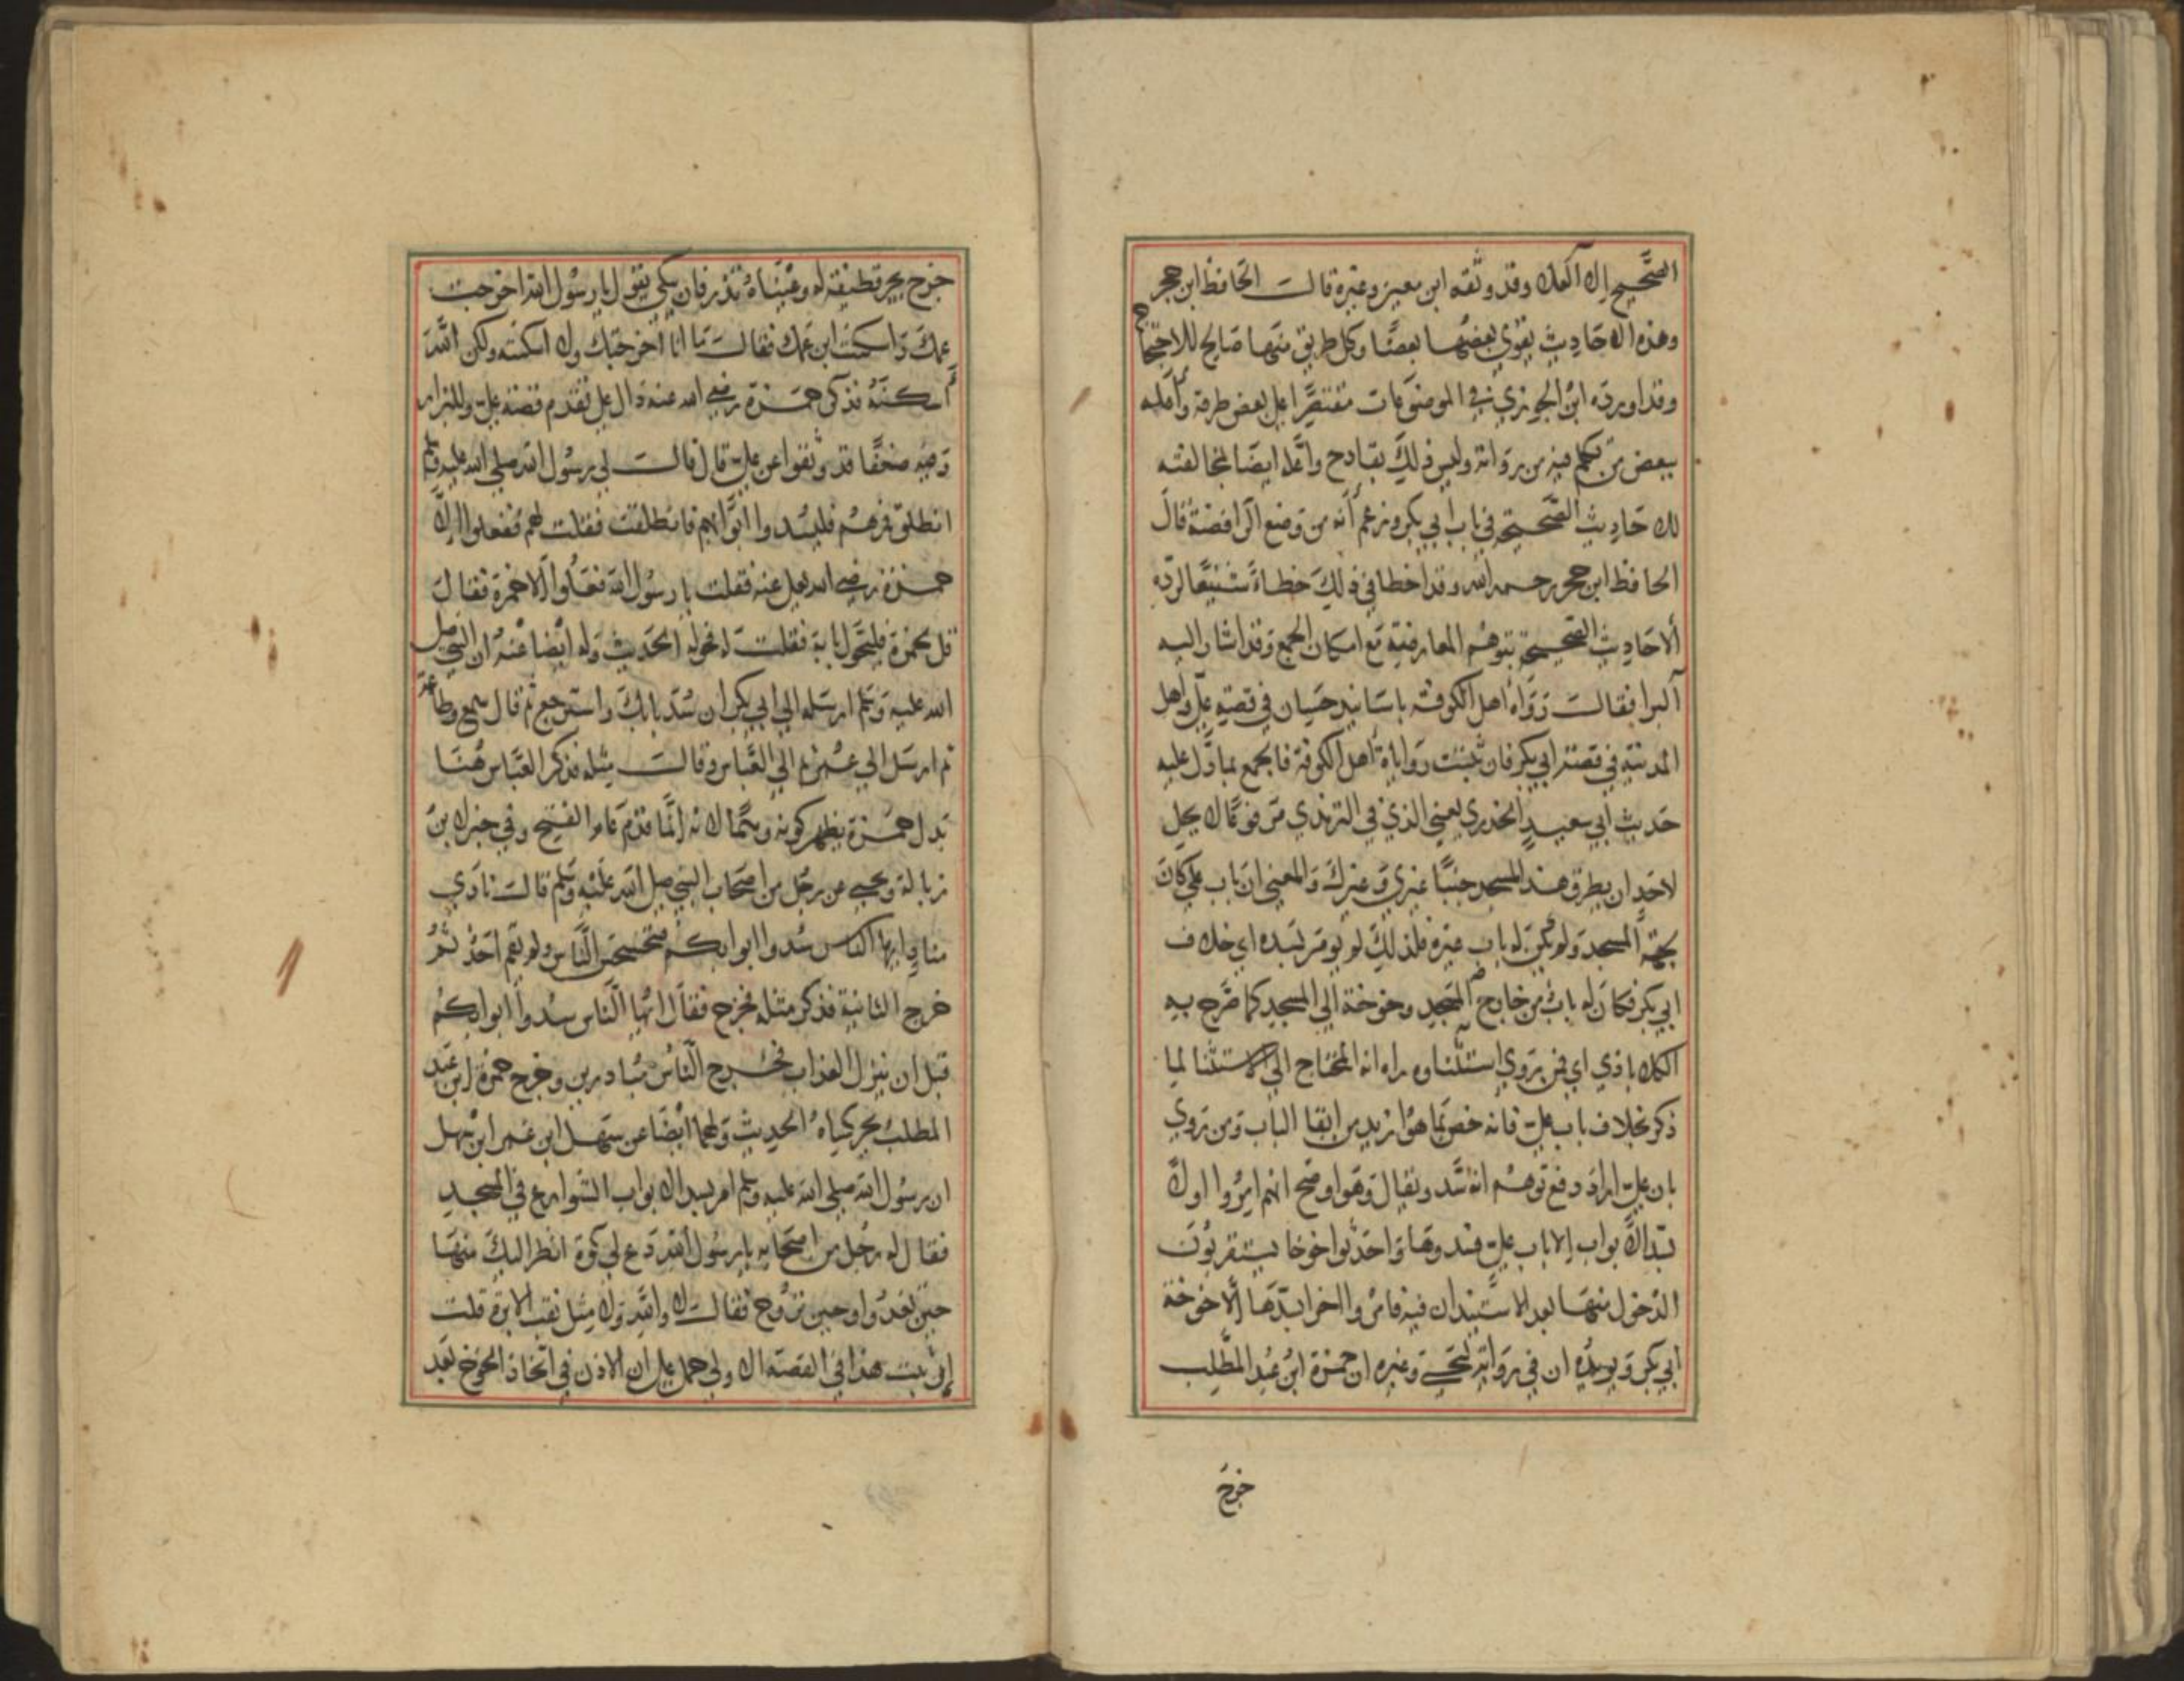 الصحيح الا العلا وقد وثقه ابن معين وغيره قال الحافظ ابن حجر
وهذه الاحاديث يقوي بعضها بعضا وكل طريق منها صالح للاحتجاج
وقد اورده ابن الجوزي في الموضوعات مقتصرا على بعض طرقه واعله
ببعض من تكلم فيه من رواته وليس ذلك بقادح واعله ايضا لمخالفته
للاحاديث الصحيحة في باب ابي بكر وزعم أنه من وضع الرافضة قال
الحافظ ابن حجر رحمه الله وقد اخطا في ذلك خطاء شنيعا لرده
الاحاديث الصحيحة بتوهم المعارضة مع امكان الجمع وقد اشار اليه
البزا فقال رواه اهل الكوفة باسانيد حسان في قصة علي واهل
المدينة في قصة ابي بكر فان ثبتت رواية اهل الكوفة فالجمع بما دل عليه
حديث ابي سعيد الخدري يعني الذي في الترمذي مرفوعا لا يحل
لاحد ان يطرق هذا المسجد جنبا غيري وغيرك والمعنى ان باب علي كان
بجهة المسجد ولم يكن له باب غيره فلذلك لم يومر بسده اي خلاف
ابي بكر فكان له باب من خارج المسجد وخوخة الى المسجد كما صرح به
الكلاباذي اي فمن روى استثناه اراد انه المحتاج الى الاستثنا لما
ذكر بخلاف باب علي فانه خص بما هو ازيد من ابقا الباب ومن روى
بان علي اراد دفع توهم انه سد ويقال وهو اوضح انهم امروا اولا
بسد الابواب الا باب علي فسدوها واحدثوا خوخا يستقربون
الدخول منها بعد الاستيذان فيه فامروا اخرا بسدها الا خوخة
ابي بكر ويويده ان في رواية ليحيى وغيره ان حمزة ابن عبد المطلب
خرج
خرج يجر قطيفة له وعيناه تذرفان يبكي يقول يا رسول الله اخرجت
عمك واسكنت ابن عمك فقال ما انا اخرجتك ولا اسكنته ولكن الله
اسكنه فذكر حمزة رضي الله عنه دال على تقدم قصة علي وللبزار
وفيه ضعفا قد وثقوا عن علي قال قال لي رسول الله صلى الله عليه وسلم
انطلق فمرهم فليسدوا ابوابهم فانطلقت فقلت لهم ففعلوا الا
حمزة رضي الله تعالى عنه فقلت يا رسول الله فعلوا الا حمزة فقال
قل لحمزة فليحول بابه فقلت له فحوله الحديث وله ايضا عنه ان النبي صلى
الله عليه وسلم ارسله الى ابي بكر ان سد بابك واسترجع ثم قال سمع وطاعة
ثم ارسل الى عمر ثم الى العباس وقال مثله فذكر العباس هنا
بدل حمزة يظهر كونه وهما لانه انما قدم عام الفتح وفي خبر لابن
زبالة ويحيى عن رجل من اصحاب النبي صلى الله عليه وسلم قال نادى
مناد ايها الناس سدوا ابوابكم فتحسحس الناس ولم يقم احد ثم
خرج الثانية فذكر مثله فخرج فقال ايها الناس سدوا ابوابكم
قبل ان ينزل العذاب فخرج الناس مبادرين وخرج حمزة ابن عبد
المطلب يجر كساه الحديث ولهما ايضا عن سهل ابن عمر ابن سهل
ان رسول الله صلى الله عليه وسلم امر بسد الابواب الشوارع في المسجد
فقال له رجل من اصحابه يا رسول الله دع لي كوة انظر اليك منها
حين تغدوا وحين تروح فقال لا والله ولا مثل ثقب الابرة قلت
ان ثبت هذا في القصة الاولى حمل على ان الاذن في اتخاذ الخوخ بعد